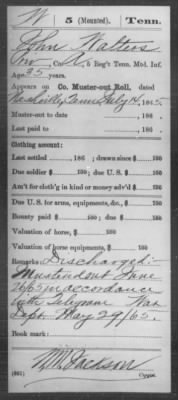 W 5 (Mounted). Tenn.
John Walters
Co. , 5 Reg't Tenn. Mtd. Inf.
Age 35 years.
Appears on Co. Muster-out Roll, dated
Nashville, Tenn July 14, 1865.
Muster-out to date , 186 .
Last paid to , 186 .
Clothing account:
Last settled , 186 ; drawn since $ 100
Due soldier $ 100; due U. S. $ 100
Am't for cloth'g in kind or money adv'd $ 100
Due U. S. for arms, equipments, &c., $ 100
Bounty paid $ 100; due $ 100
Valuation of horse, $ 100
Valuation of horse equipments, $ 100
Remarks: Discharged:-
Musteredout June
26/65 in accordance
with Telegram War
Dept. May 29/65.
Book mark:
Jackson
Copyist.